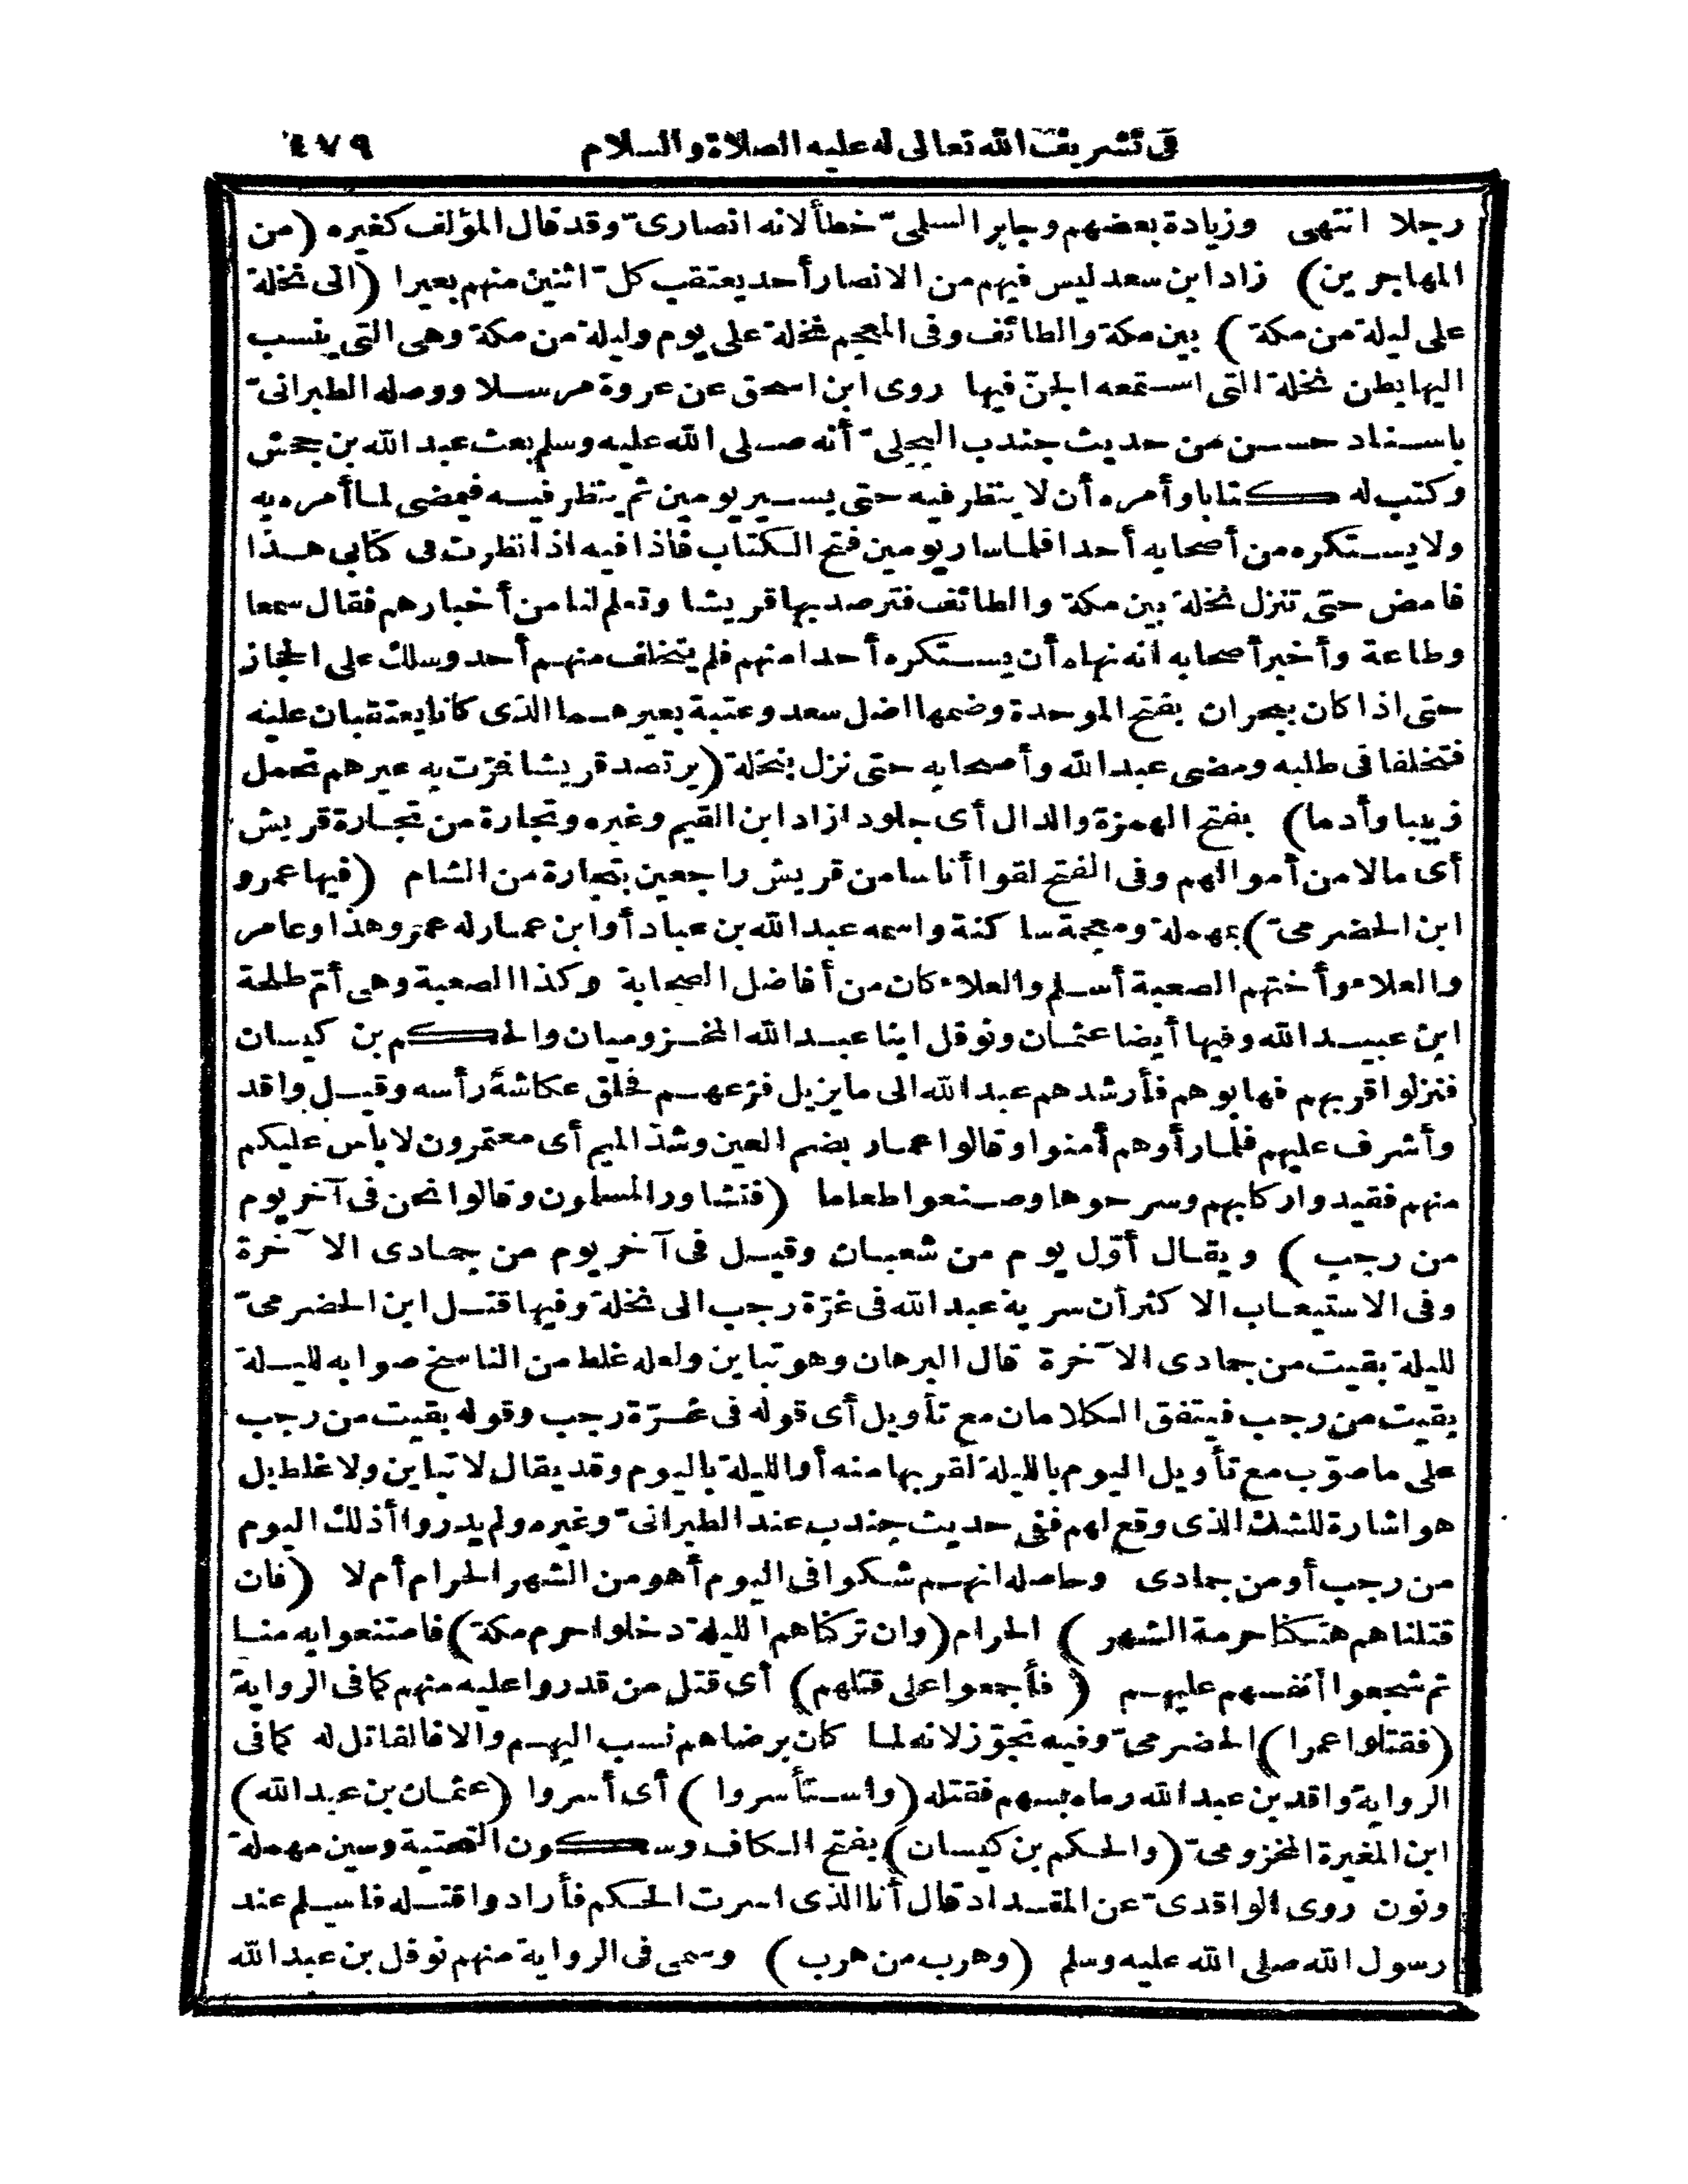 في تشريف الله تعالى له عليه الصلاة والسلام ٤٧٩
رجلا انتهى وزيادة بعضهم وجابر السلمىّ خطأ لانه انصارىّ وقد قال المؤلف كغيره (من
المهاجرين) زاد ابن سعد ليس فيهم من الانصار أحد يعتقب كلّ اثنين منهم بعيرا (الى نخلة
على ليلة من مكة) بين مكة والطائف وفى المعجم نخلة على يوم وليلة من مكة وهى التى ينسب
اليها بطن نخلة التى استمعه الجنّ فيها روى ابن اسحق عن عروة مرسلا ووصله الطبرانىّ
باسناد حسن من حديث جندب البجلىّ أنه صلى الله عليه وسلم بعث عبد الله بن جحش
وكتب له كتابا وأمره أن لا ينظر فيه حتى يسير يومين ثم ينظر فيه فيمضى لما أمره به
ولا يستكره من أصحابه أحدا فلما سار يومين فتح الكتاب فاذا فيه اذا نظرت فى كتابى هذا
فامض حتى تنزل نخلة بين مكة والطائف فترصد بها قريشا وتعلم لنا من أخبارهم فقال سمعا
وطاعة وأخبر أصحابه انه نهاه أن يستكره أحدا منهم فلم يتخلف منهم أحد وسلك على الحجاز
حتى اذا كان ببحران بفتح الموحدة وضمها اضل سعد وعتبة بعيرهما الذى كانا يعتقبان عليه
فتخلفا فى طلبه ومضى عبد الله وأصحابه حتى نزل بنخلة (يرتصد قريشا فمرّت به عيرهم تحمل
زبيبا وأدما) بفتح الهمزة والدال أى جلودا زاد ابن القيم وغيره وتجارة من تجارة قريش
أى مالا من أموالهم وفى الفتح لقوا أناسا من قريش راجعين بتجارة من الشام (فيها عمرو
ابن الحضرمىّ) بمهملة ومعجمة ساكنة واسمه عبد الله بن عباد أو ابن عمار له عمرو هذا وعامر
والعلاء وأختهم الصعبة أسلم والعلاء كان من أفاضل الصحابة وكذا الصعبة وهى أمّ طلحة
ابن عبيد الله وفيها أيضا عثمان ونوفل ابنا عبد الله المخزوميان والحكم بن كيسان
فنزلوا قربهم فهابوهم فأرشدهم عبد الله الى ما يزيل فزعهم فحلق عكاشة رأسه وقيل واقد
وأشرف عليهم فلما رأوهم أمنوا وقالوا عمار بضم العين وشدّ الميم أى معتمرون لا بأس عليكم
منهم فقيدوا ركابهم وسرحوها وصنعوا طعاما (فتشاور المسلمون وقالوا نحن فى آخر يوم
من رجب) ويقال أوّل يوم من شعبان وقيل فى آخر يوم من جمادى الآخرة
وفى الاستيعاب الاكثر أن سرية عبد الله فى غرّة رجب الى نخلة وفيها قتل ابن الحضرمىّ
لليلة بقيت من جمادى الآخرة قال البرهان وهو تباين ولعله غلط من الناسخ صوابه لليلة
بقيت من رجب فيتفق الكلامان مع تأويل أى قوله فى غرّة رجب وقوله بقيت من رجب
على ما صوّب مع تأويل اليوم بالليلة لقربها منه أو الليلة باليوم وقد يقال لا تباين ولا غلط بل
هو اشارة للشك الذى وقع لهم ففى حديث جندب عند الطبرانىّ وغيره ولم يدروا أذلك اليوم
من رجب أو من جمادى وحاصله انهم شكوا فى اليوم أهو من الشهر الحرام أم لا (فان
قتلناهم هتكنا حرمة الشهر) الحرام (وان تركناهم الليلة دخلوا حرم مكة) فامتنعوا به منا
ثم شجعوا أنفسهم عليهم (فأجمعوا على قتلهم) أى قتل من قدروا عليه منهم كما فى الرواية
(فقتلوا عمرا) الحضرمىّ وفيه تجوّز لانه لما كان برضاهم نسب اليهم والا فالقاتل له كما فى
الرواية واقد بن عبد الله رماه بسهم فقتله (واستأسروا) أى أسروا (عثمان بن عبد الله)
ابن المغيرة المخزومىّ (والحكم بن كيسان) بفتح الكاف وسكون التحتية وسين مهملة
ونون روى الواقدىّ عن المقداد قال أنا الذى اسرت الحكم فأرادوا قتله فاسلم عند
رسول الله صلى الله عليه وسلم (وهرب من هرب) وسمى فى الرواية منهم نوفل بن عبد الله